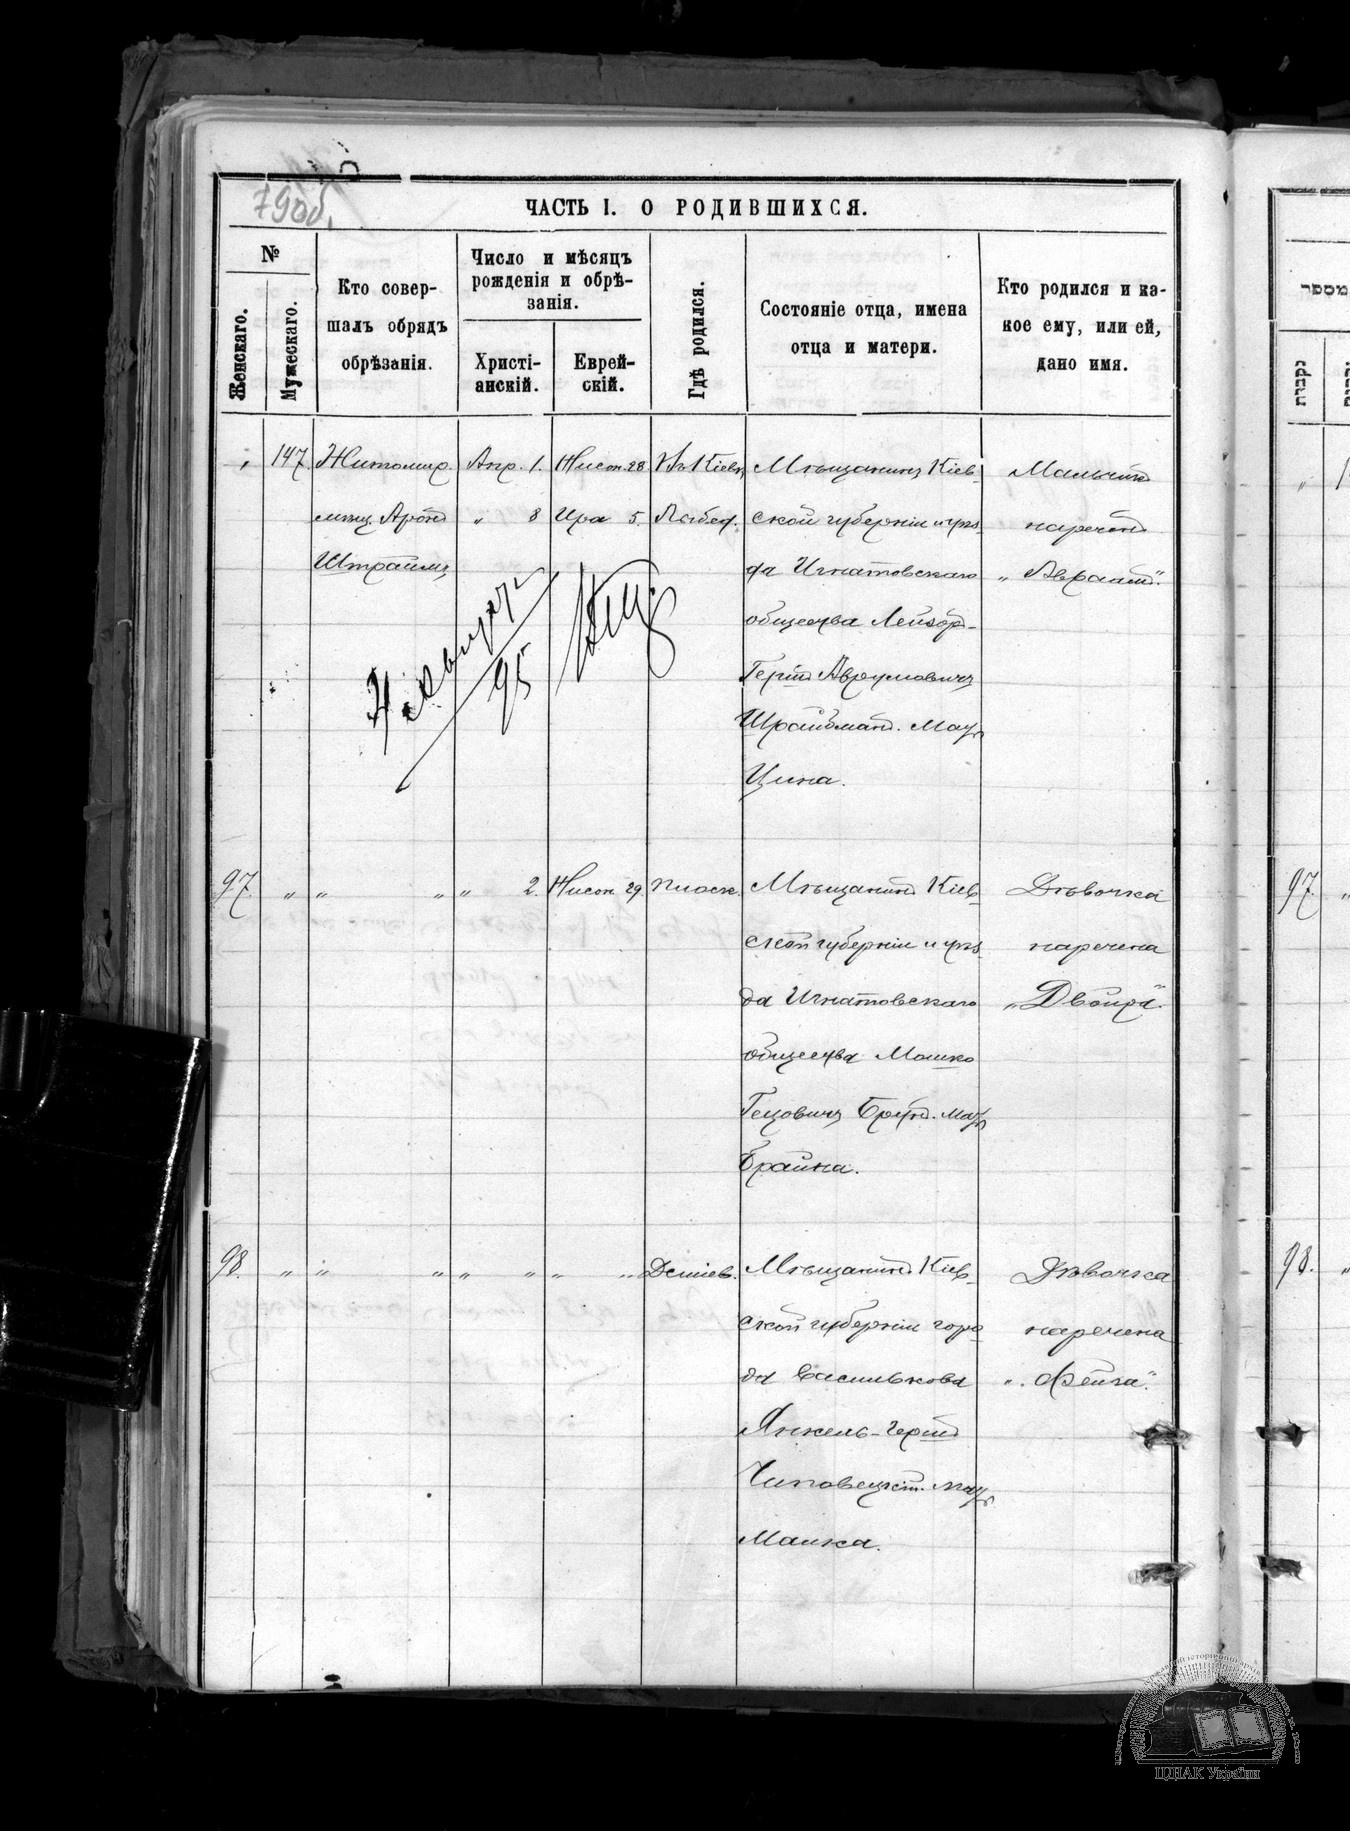 790б.
ЧАСТЬ I. О РОДИВШИХСЯ.
№
Женскаго.
Мужескаго.
Кто совер-
шалъ обрядъ
обрѣзанія.
Число и мѣсяцъ
рожденія и обрѣ-
занія.
Христі-
анскій.
Еврей-
скій.
Гдѣ родился.
Состояніе отца, имена
отца и матери.
Кто родился и ка-
кое ему, или ей,
дано имя.
" 147. Житомир.
мѣщ. Аронъ
Штраймъ
Апр. 1.
" 8
Нисон. 28
Ира 5.
Въ Кіевѣ
Лыбед.
Мѣщанинъ Кіев-
ской губерніи и уѣз-
да Игнатовскаго
общества Лейзоръ-
Гершъ Аврумовичъ
Шрайбманъ. Мать
Цина.
Мальчикъ
нареченъ
"Авраамъ".
95
97. " " " " 2. Нисон. 29. Плоск.
Мѣщанинъ Кіев-
ской губерніи и уѣз-
да Игнатовскаго
общества Мошко
Гецовичъ Бруд. Мать
Брайна.
Дѣвочка
наречена
"Двойра".
98. " " " " " " " Деміев.
Мѣщанинъ Кіев-
ской губерніи горо-
да Василькова
Янкель-Гершъ
Чиповецкій. Мать
Малка.
Дѣвочка
наречена
"Фейга".
מספר
נקבות
97. "
98. "
ЦДІАК України